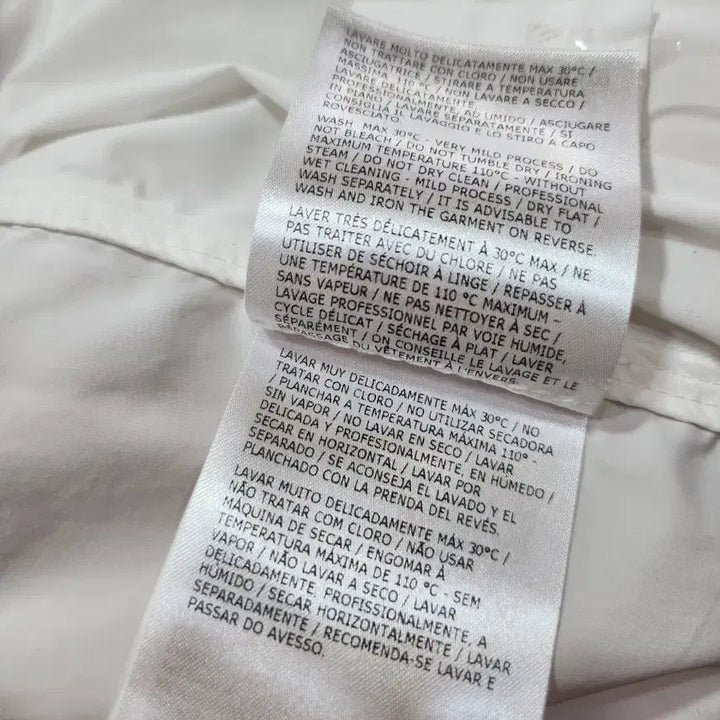 LAVARE MOLTO DELICATAMENTE MAX 30°C /
NON TRATTARE CON CLORO / NON USARE
ASCIUGATRICE / STIRARE A TEMPERATURA
MASSIMA
NON LAVARE A SECCO /
PROFESSIONALMENTE, AD UMIDO / ASCIUGARE
IN PIANO / LAVARE SEPARATAMENTE / SI
CONSIGLIA IL LAVAGGIO E LO STIRO A CAPO
ROVESCIATO
WASH MAX 30°C - VERY MILD PROCESS / DO
NOT BLEACH / DO NOT TUMBLE DRY / IRONING
MAXIMUM TEMPERATURE 110°C - WITHOUT
STEAM / DO NOT DRY CLEAN / PROFESSIONAL
WET CLEANING - MILD PROCESS / DRY FLAT /
WASH SEPARATELY / IT IS ADVISABLE TO
WASH AND IRON THE GARMENT ON REVERSE.
LAVER TRÈS DÉLICATEMENT À 30°C MAX / NE
PAS TRAITER AVEC DU CHLORE / NE PAS
UTILISER DE SÉCHOIR À LINGE / REPASSER À
UNE TEMPÉRATURE DE 110 °C MAXIMUM -
SANS VAPEUR / NE PAS NETTOYER À SEC /
LAVAGE PROFESSIONNEL PAR VOIE HUMIDE,
CYCLE DÉLICAT / SÉCHAGE À PLAT / LAVER
SÉPARÉMENT / ON CONSEILLE LE LAVAGE ET LE
REPASSAGE DU VÊTEMENT À L'ENVERS.
LAVAR MUY DELICADAMENTE MÁX 30°C / NO
TRATAR CON CLORO / NO UTILIZAR SECADORA
/ PLANCHAR A TEMPERATURA MÁXIMA 110° -
SIN VAPOR / NO LAVAR EN SECO / LAVAR
DELICADA Y PROFESIONALMENTE, EN HÚMEDO /
SECAR EN HORIZONTAL / LAVAR POR
SEPARADO / SE ACONSEJA EL LAVADO Y EL
PLANCHADO CON LA PRENDA DEL REVÉS.
LAVAR MUITO DELICADAMENTE MÁX 30°C /
NÃO TRATAR COM CLORO / NÃO USAR
MÁQUINA DE SECAR / ENGOMAR À
TEMPERATURA MÁXIMA DE 110 °C - SEM
VAPOR / NÃO LAVAR A SECO / LAVAR
DELICADAMENTE PROFISSIONALMENTE, A
HÚMIDO / SECAR HORIZONTALMENTE / LAVAR
SEPARADAMENTE / RECOMENDA-SE LAVAR E
PASSAR DO AVESSO.